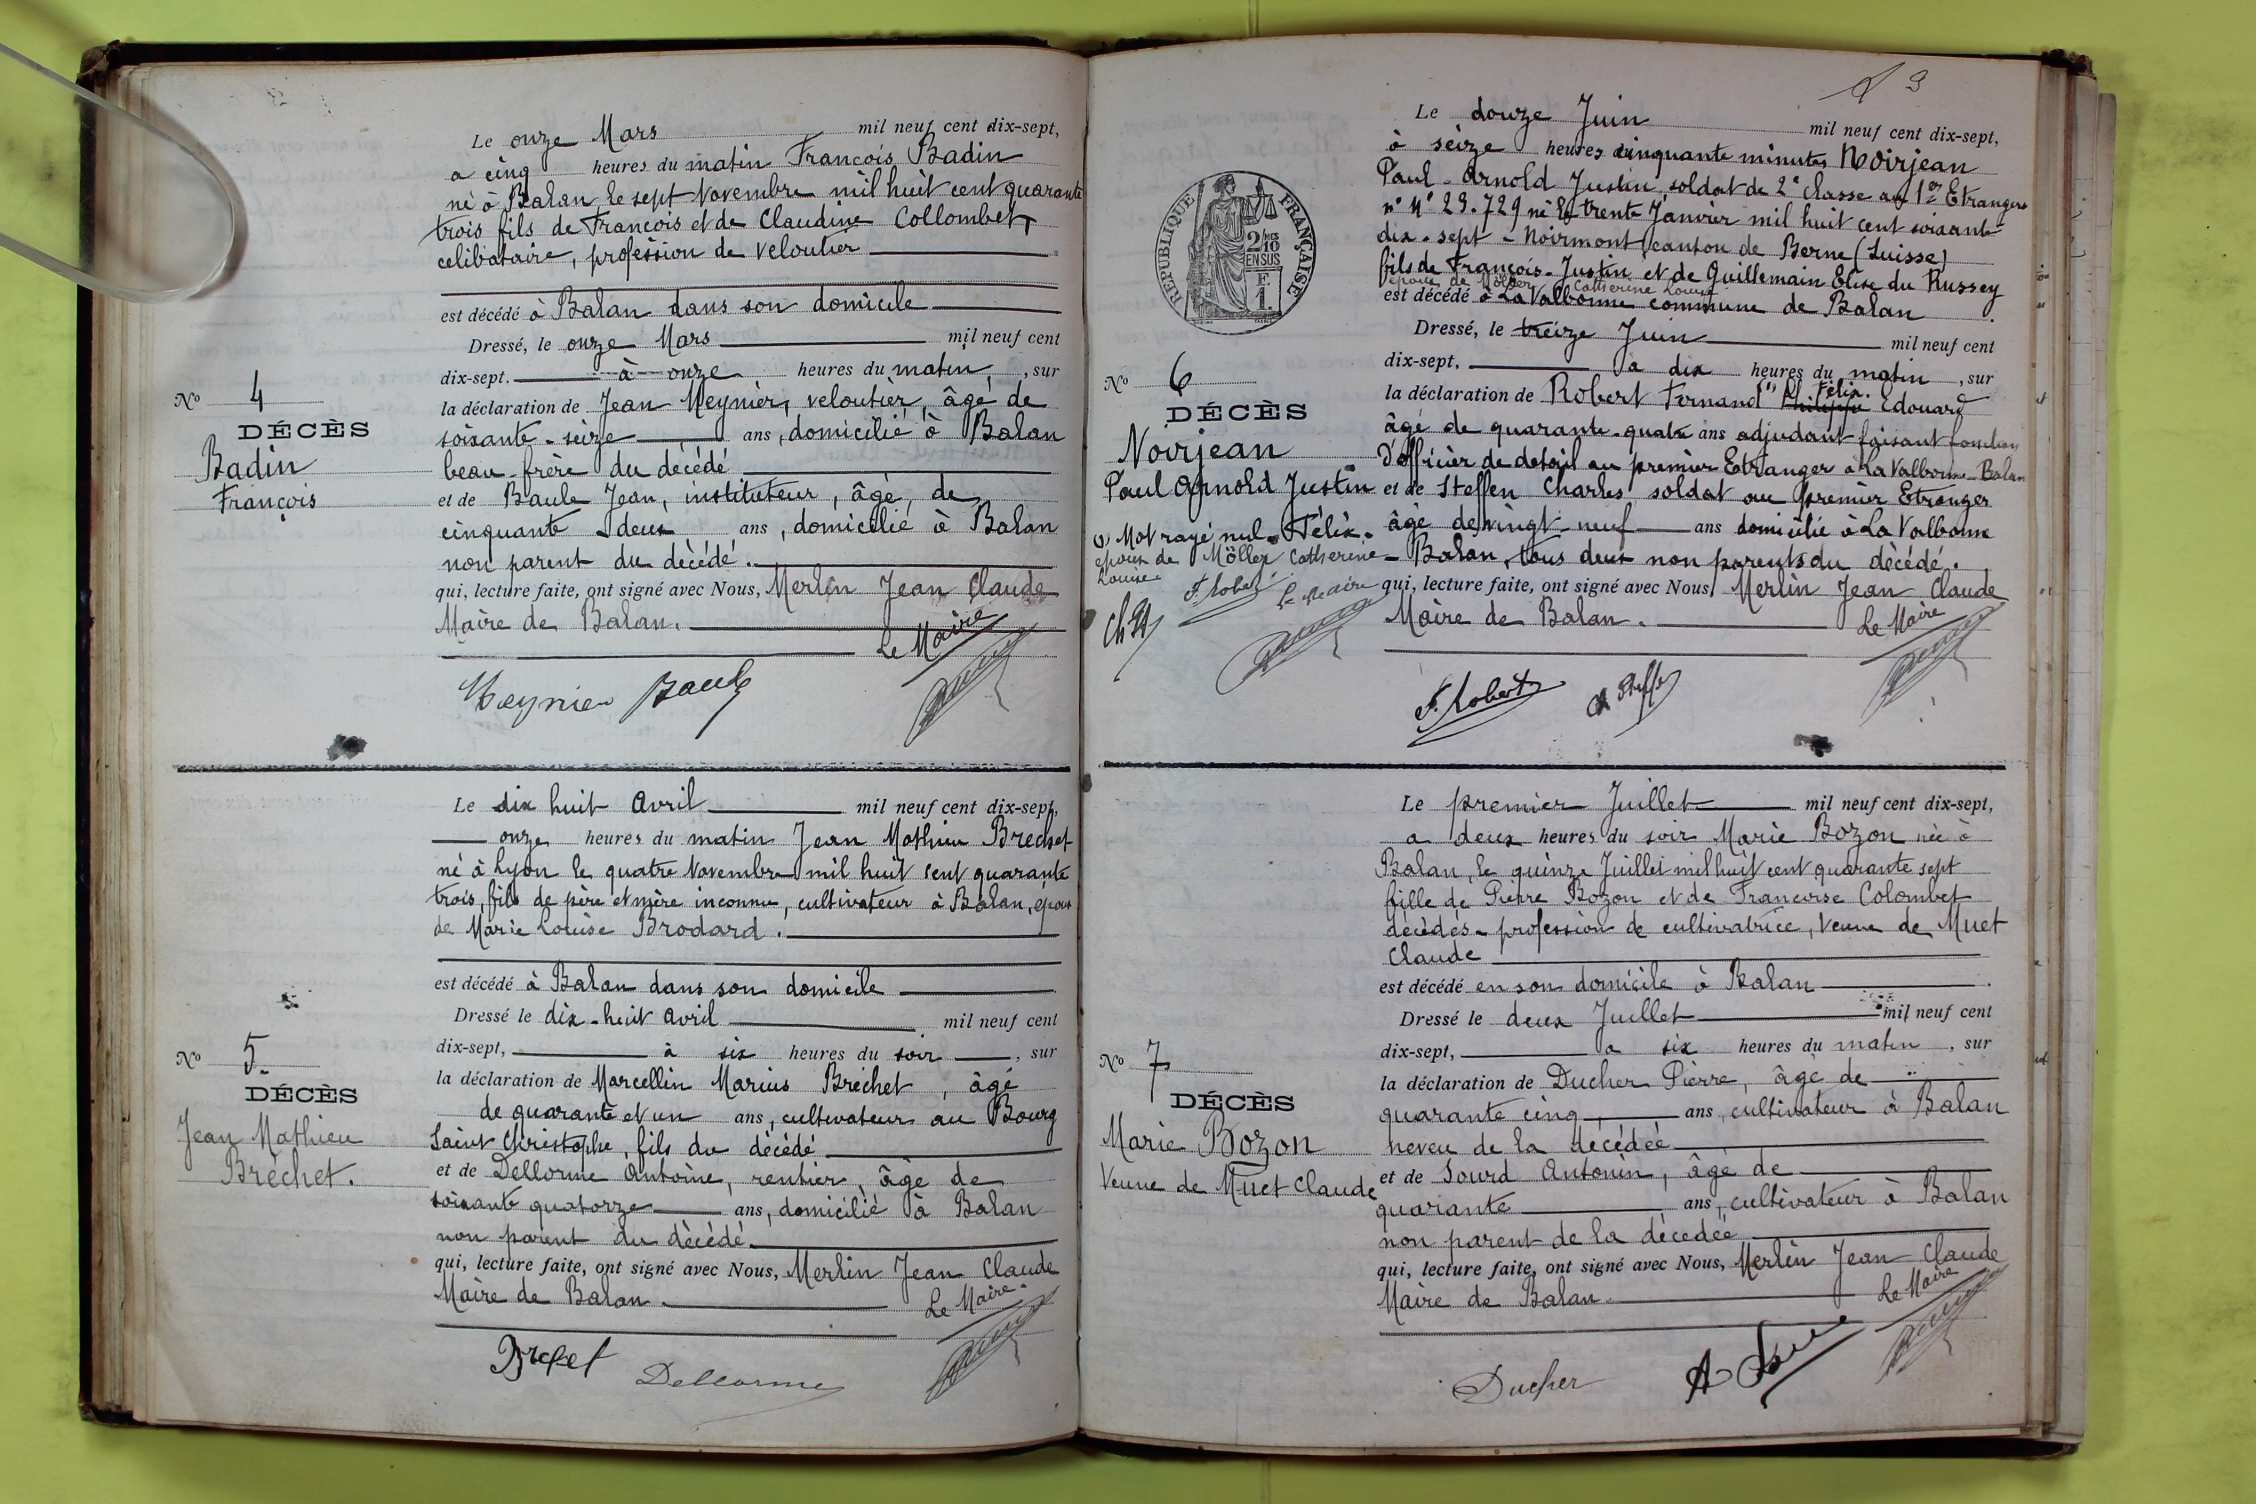 Le onze Mars mil neuf cent dix-sept,
a cinq heures du matin François Badin
né à Balan, le sept Novembre mil huit cent quarante
trois fils de François et de Claudine Collombet
celibataire, profession de veloutier
est décédé à Balan dans son domicile
Dressé, le onze Mars mil neuf cent
dix-sept. à onze heures du matin, sur
la déclaration de Jean Meynier, veloutier, âgé de
soixante-seize ans, domicilié à Balan
beau-frère du décédé
et de Baule Jean, instituteur, âgé, de
cinquante deux ans, domicilié à Balan
non parent du décédé.
qui, lecture faite, ont signé avec Nous, Merlin Jean Claude
Maire de Balan.
Le Maire
Meynier Baule
No 4
DÉCÈS
Badin
François
Le dix huit Avril mil neuf cent dix-sept,
onze heures du matin Jean Mathieu Brechet
né à Lyon le quatre Novembre mil huit cent quarante
trois, fils de père et mère inconnu, cultivateur à Balan, époux
de Marie Louise Brodard.
est décédé à Balan dans son domicile
Dressé le dix-huit Avril mil neuf cent
dix-sept, à six heures du soir, sur
la déclaration de Marcellin Marius Bréchet, âgé
de quarante et un ans, cultivateur au Bourg
Saint Christophe, fils du décédé
et de Dellorme Antoine, rentier, âgé de
soixante quatorze ans, domicilié à Balan
non parent du décédé.
qui, lecture faite, ont signé avec Nous, Merlin Jean Claude
Maire de Balan.
Le Maire
Brechet
Dellorme
No 5.
DÉCÈS
Jean Mathieu
Bréchet.
3
Le douze Juin mil neuf cent dix-sept,
à seize heures cinquante minutes Noirjean
Paul-Arnold Justin, soldat de 2e classe au 1er Etranger
n° Me 23.729 né le trente Janvier mil huit cent soixante
dix-sept - Noirmont canton de Berne (Suisse)
fils de François-Justin et de Guillemain Elise du Russey
époux de Möller Catherine Louise
est décédé à La Valbonne commune de Balan
Dressé, le treize Juin mil neuf cent
dix-sept, à dix heures du matin, sur
la déclaration de Robert Fernand (1) Félix. Philippe Edouard
âgé de quarante-quatre ans adjudant faisant fonction
d'officier de détail au premier Etranger à La Valbonne-Balan
et de Steffen Charles soldat au premier Etranger
âgé de vingt-neuf ans domicilié à La Valbonne
-Balan, tous deux non parents du décédé.
qui, lecture faite, ont signé avec Nous, Merlin Jean Claude
Maire de Balan.
Le Maire
F. Robert Ch Steffen
RÉPUBLIQUE FRANÇAISE
2/10
EN SUS
F.
1.
No 6
DÉCÈS
Noirjean
Paul Arnold Justin
(1) Mot rayé nul. Félix.
époux de Möller Catherine
Louise
F. Robert Le Maire
Ch St
Le premier Juillet mil neuf cent dix-sept,
a deux heures du soir Marie Bozon née à
Balan, le quinze Juillet mil huit cent quarante sept
fille de Pierre Bozon et de Francoise Colombet
décédés - profession de cultivatrice, veuve de Muet
Claude
est décédé en son domicile à Balan.
Dressé le deux Juillet mil neuf cent
dix-sept, a six heures du matin, sur
la déclaration de Ducher Pierre, âgé de
quarante cinq ans, cultivateur à Balan
neveu de la décédée
et de Sourd Antonin, âgé de
quarante ans, cultivateur à Balan
non parent de la décédée
qui, lecture faite, ont signé avec Nous, Merlin Jean Claude
Maire de Balan.
Le Maire
Ducher A Sourd
No 7
DÉCÈS
Marie Bozon
Veuve de Muet Claude